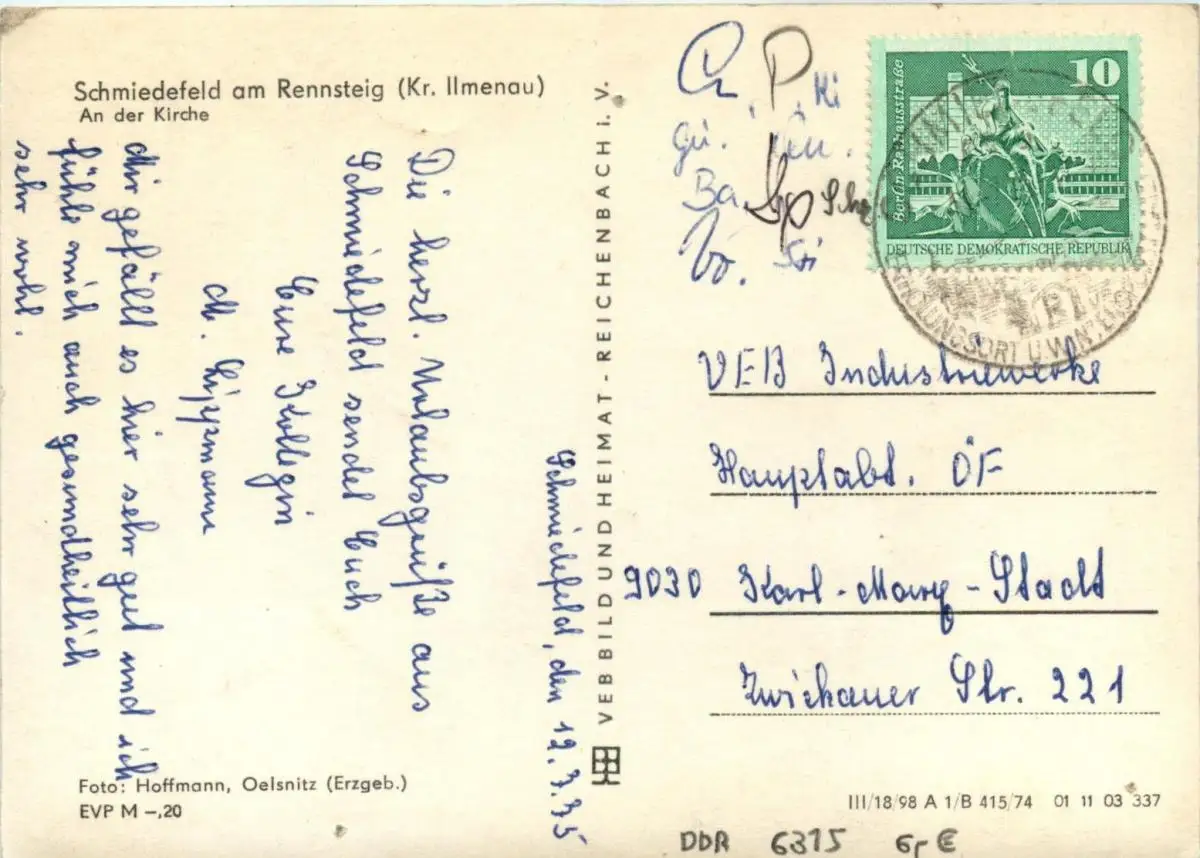 Schmiedefeld am Rennsteig (Kr. Ilmenau)
An der Kirche
Schmiedefeld, den 12.7.75
Die herzl. Urlaubsgrüße aus
Schmiedefeld sendet Euch
Eure Kollegin
M. Lippmann
Mir gefällt es hier sehr gut und ich
fühle mich auch gesundheitlich
sehr wohl.
Foto: Hoffmann, Oelsnitz (Erzgeb.)
EVP M –,20
VEB BILD UND HEIMAT - REICHENBACH i. V.
P. Ki
gü.
Ba. Sp
Bö.
10
Berlin-Rathausstraße
DEUTSCHE DEMOKRATISCHE REPUBLIK
ERHOLUNGSORT U. WINT
VEB Industriewerke
Hauptabt. ÖF
9030 Karl-Marx-Stadt
Zwickauer Str. 221
III/18/98 A 1/B 415/74 01 11 03 337
DDR 6315 6,- €